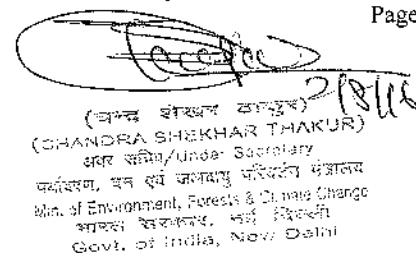 Page
(चन्द्र शेखर ठाकुर)
(CHANDRA SHEKHAR THAKUR)
अवर सचिव/Under Secretary
पर्यावरण, वन एवं जलवायु परिवर्तन मंत्रालय
Min. of Environment, Forests & Climate Change
भारत सरकार, नई दिल्ली
Govt. of India, New Delhi